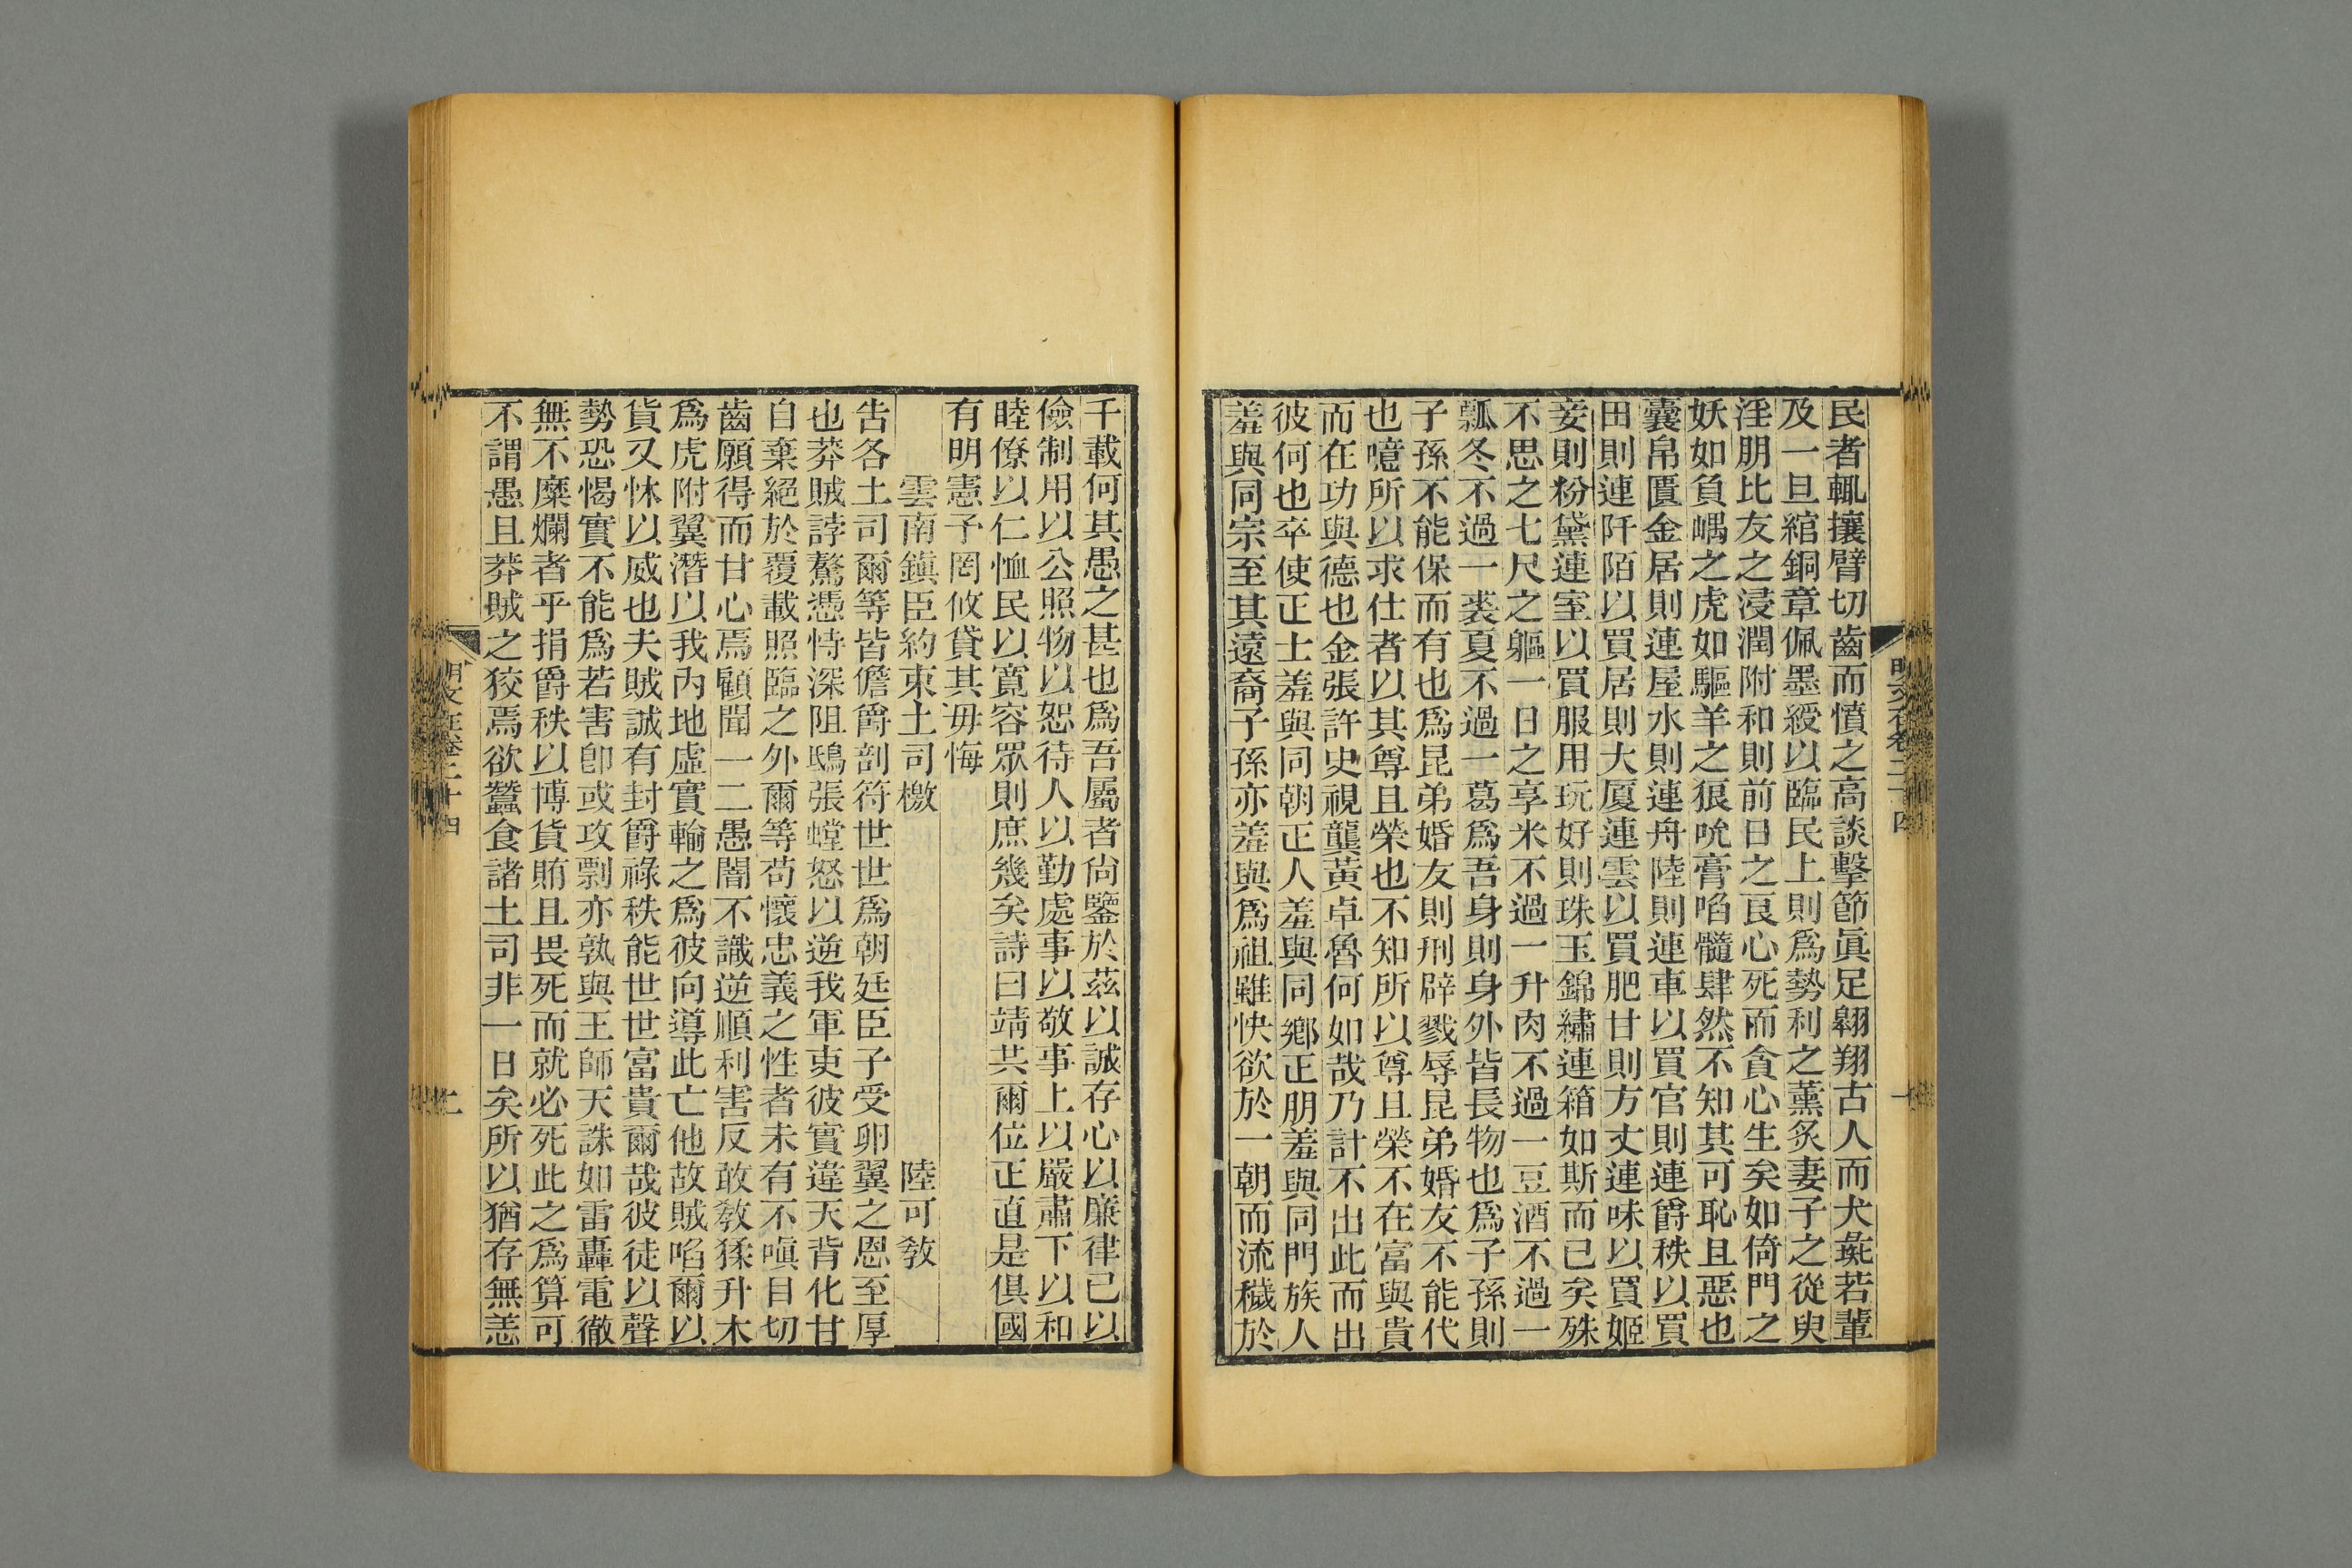 民者輒攘臂切齒而憤之高談擊節眞足翱翔古人而犬彘若輩
及一旦綰銅章佩墨綬以臨民上則爲勢利之薰炙妻子之從臾
淫朋比友之浸潤附和則前日之良心死而貪心生矣如倚門之
妖如負嵎之虎如驅羊之狼吮膏啗髓肆然不知其可恥且惡也
囊帛匱金居則連屋水則連舟陸則連車以買官則連爵秩以買
田則連阡陌以買居則大厦連雲以買肥甘則方丈連味以買姬
妾則粉黛連室以買服用玩好則珠玉錦繡連箱如斯而已矣殊
不思之七尺之軀一日之享米不過一升肉不過一豆酒不過一
瓢冬不過一裘夏不過一葛爲吾身則身外皆長物也爲子孫則
子孫不能保而有也爲昆弟婚友則刑辟戮辱昆弟婚友不能代
也噫所以求仕者以其尊且榮也不知所以尊且榮不在富與貴
而在功與德也金張許史視龔黃卓魯何如哉乃計不出此而出
彼何也卒使正士羞與同朝正人羞與同鄉正朋羞與同門族人
羞與同宗至其遠裔子孫亦羞與爲祖雖快欲於一朝而流穢於
千載何其愚之甚也爲吾屬者尙鑒於茲以誠存心以廉律己以
儉制用以公照物以恕待人以勤處事以敬事上以嚴肅下以和
睦僚以仁恤民以寬容眾則庶幾矣詩曰靖共爾位正直是俱國
有明憲予罔攸貸其毋悔
雲南鎮臣約束土司檄　陸可敎
告各土司爾等皆儋爵剖符世世爲朝廷臣子受卵翼之恩至厚
也莽賊誖驁憑恃深阻鴟張螳怒以逆我軍吏彼實違天背化甘
自棄絕於覆載照臨之外爾等苟懷忠義之性者未有不嗔目切
齒願得而甘心焉顧聞一二愚闇不識逆順利害反敢敎猱升木
爲虎附翼潛以我內地虛實輸之爲彼向導此亡他故賊啗爾以
貨又怵以威也夫賊誠有封爵祿秩能世世富貴爾哉彼徒以聲
勢恐愒實不能爲若害卽或攻剽亦孰與王師天誅如雷轟電徹
無不糜爛者乎捐爵秩以博貨賄且畏死而就必死此之爲算可
不謂愚且莽賊之狡焉欲蠶食諸土司非一日矣所以猶存無恙
明文在卷二十四
二